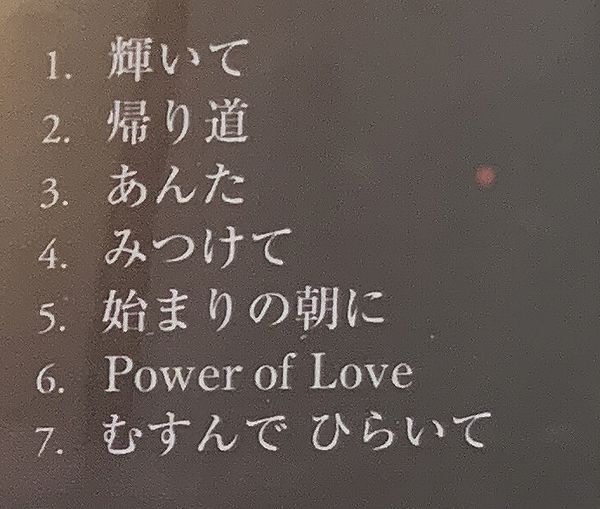 1. 輝いて
2. 帰り道
3. あんた
4. みつけて
5. 始まりの朝に
6. Power of Love
7. むすんで ひらいて